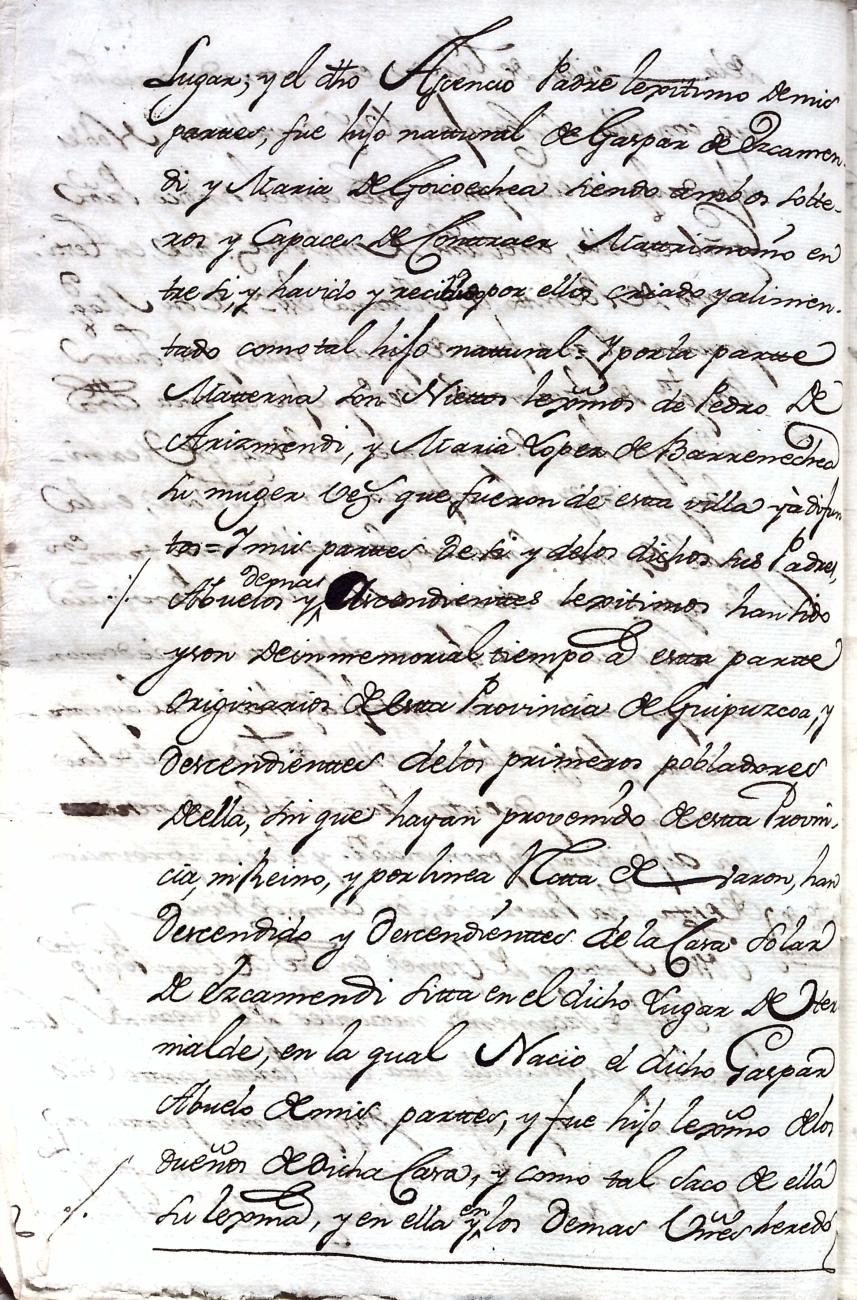 Lugar; y el dho Ascencio Padre lexitimo demis
parttes, fue hijo nattural de Gaspar de Ezcamen-
di y Maria de Goicoechea siendo ambos solte-
ros y Capaces de Conttraer Mattrimonio en
tre si, y havido y recibido por ellos criado y alimen-
tado como tal hijo nattural = Y por la partte
Matterna son Niettos lexmos de Pedro De
Arizmendi, y Maria Lopez de Barrenechea
su muger vez.s que fueron de estta villa yà difun
tos = Y mis parttes De si y delos dichos sus Padres,
Abuelos y demas Ascendienttes lexitimos han sido
y son deinmemorial tiempo a estta partte
originarios de estta Provincia de Guipuzcoa, y
Descendienttes delos primeros pobladores
de ella, sin que hayan provenido de ottra Provin-
cia, ni Reino, y por linea Rectta de varon, han
Descendido y Descendienttes de la Casa solar
De Ezcamendi sitta en el dicho Lugar De Her
nialde, en la qual Nacio el dicho Gaspar
Abuelo demis parttes, y fue hijo lexmo delos
dueños de dicha Casa, y como tal saco de ella
su lexma, y en ella y en los Demas vnes heredó